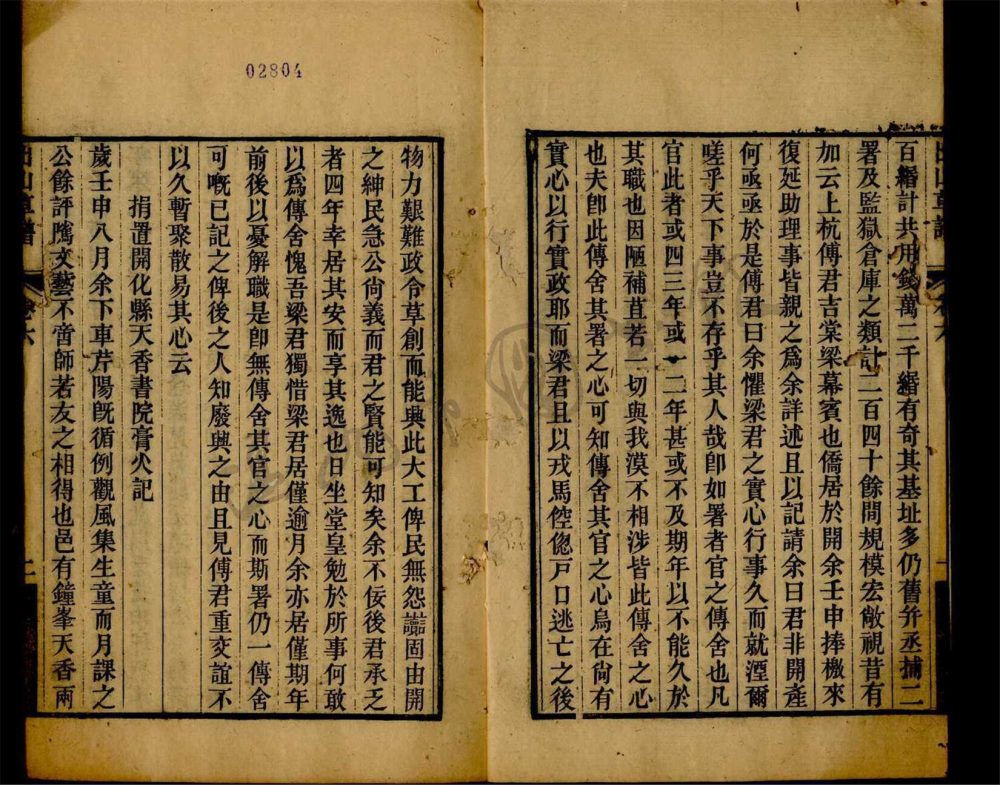 百緡計共用錢萬二千緡有奇其基址多仍舊并丞捕二
署及監獄倉庫之類計二百四十餘間規模宏敞視昔有
加云上杭傅君吉棠梁幕賓也僑居於開余壬申捧檄來
復延助理事皆親之為余詳述且以記請余曰君非開產
何亟亟於是傅君曰余懼梁君之實心行事久而就湮爾
嗟乎天下事豈不存乎其人哉卽如署者官之傳舍也凡
官此者或四三年或一二年甚或不及期年以不能久於
其職也因陋補苴若一切與我漠不相涉皆此傳舍之心
也夫卽此傳舍其署之心可知傳舍其官之心烏在尙有
實心以行實政耶而梁君且以戎馬倥傯戸口逃亡之後
物力艱難政令草創而能興此大工俾民無怨讟固由開
之紳民急公尙義而君之賢能可知矣余不佞後君承乏
者四年幸居其安而享其逸也日坐堂皇勉於所事何敢
以爲傳舍愧吾梁君獨惜梁君居僅逾月余亦居僅期年
前後以憂解職是卽無傳舍其官之心而斯署仍一傳舍
可嘅已記之俾後之人知廢興之由且見傅君重交誼不
以久暫聚散易其心云
捐置開化縣天香書院膏火記
歲壬申八月余下車芹陽旣循例觀風集生童而月課之
公餘評隲文藝不啻師若友之相得也邑有鐘峯天香兩
卷六
02804